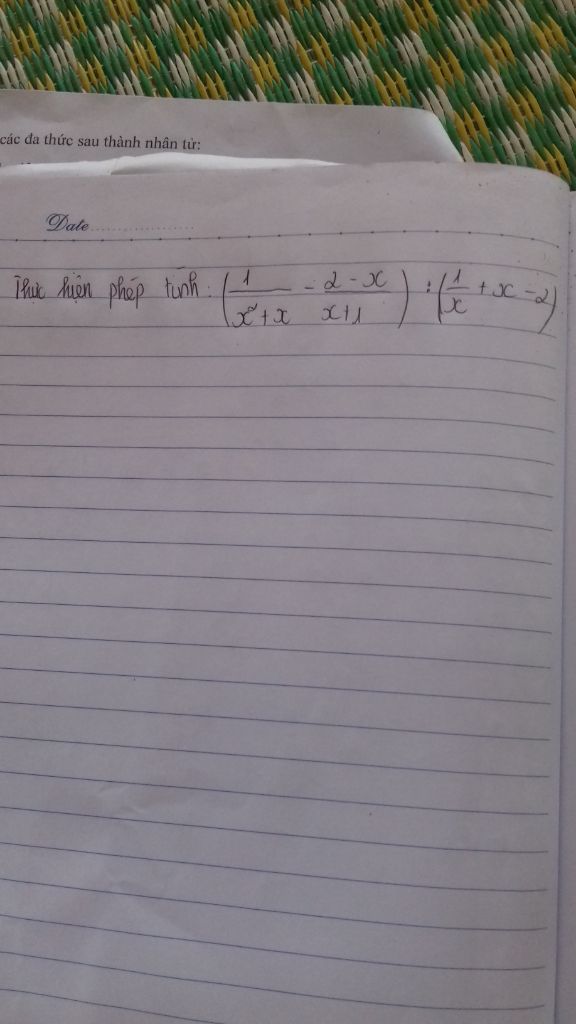 các đa thức sau thành nhân tử:
Date
Thực hiện phép tính: (1/(x²+x) - (2-x)/(x+1)) : (1/x + x - 2)